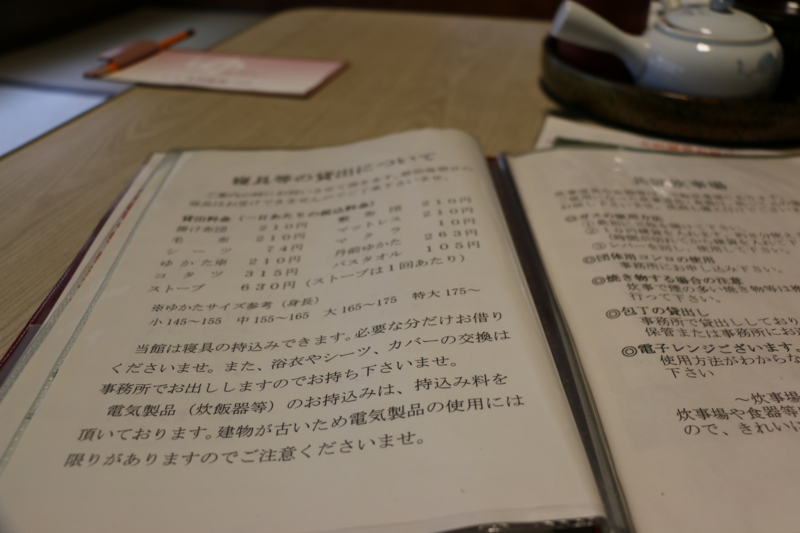 寝具等の貸出について
貸出料金（一日あたりの税込料金）
掛け布団 210円 敷布団 210円
毛布 210円 マットレス 210円
シーツ 74円 マクラ 10円
ゆかた 210円 丹前ゆかた 263円
コタツ 315円 バスタオル 105円
ストーブ 630円（ストーブは1回あたり）
※ゆかたサイズ参考（身長）
小145～155 中155～165 大165～175 特大175～
当館は寝具の持込みできます。必要な分だけお借り
くださいませ。また、浴衣やシーツ、カバーの交換は
事務所でお出ししますのでお持ち下さいませ。
電気製品（炊飯器等）のお持込みは、持込み料を
頂いております。建物が古いため電気製品の使用には
限りがありますのでご注意くださいませ。
共同炊事場
◎ガスの使用方法
◎団体用コンロの使用
事務所にお申込み下さい。
◎焼き物する場合の注意
炊事で煙の多い焼き物等は
行って下さい。
◎包丁の貸出し
事務所で貸出ししており
保管または事務所にお
◎電子レンジございます。
使用方法がわからな
下さい
～炊事場
炊事場や食器等
ので、きれいに